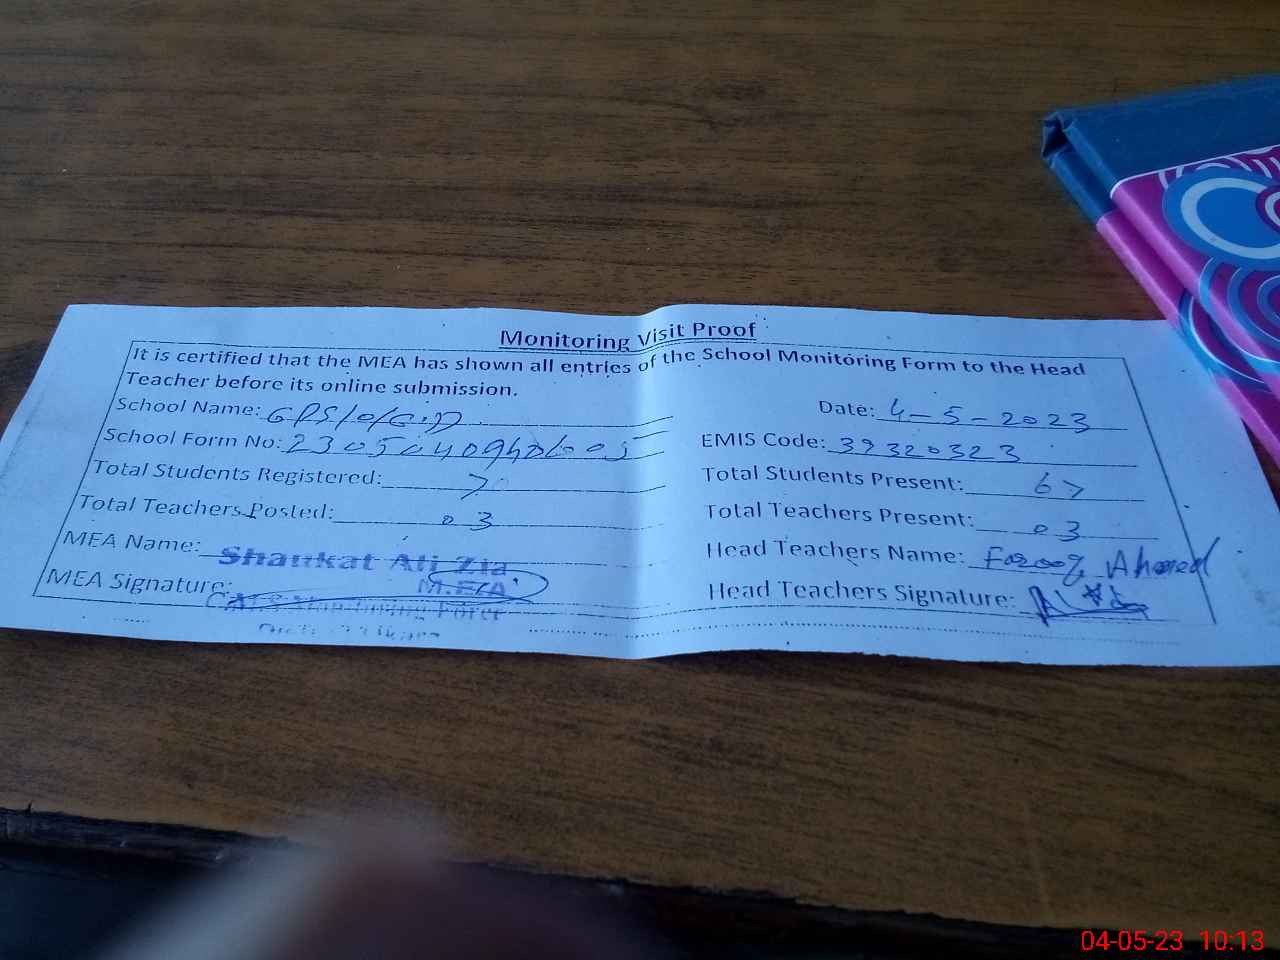 Monitoring Visit Proof
It is certified that the MEA has shown all entries of the School Monitoring Form to the Head
Teacher before its online submission.
School Name: Date: 4-5-2023
School Form No: EMIS Code: 39320323
Total Students Registered: Total Students Present: 67
Total Teachers Posted: 03 Total Teachers Present: 03
MEA Name: Shaukat Ali Zia Head Teachers Name: Farooq Ahmed
MEA Signature: M.E.A Head Teachers Signature:
04-05-23 10:13